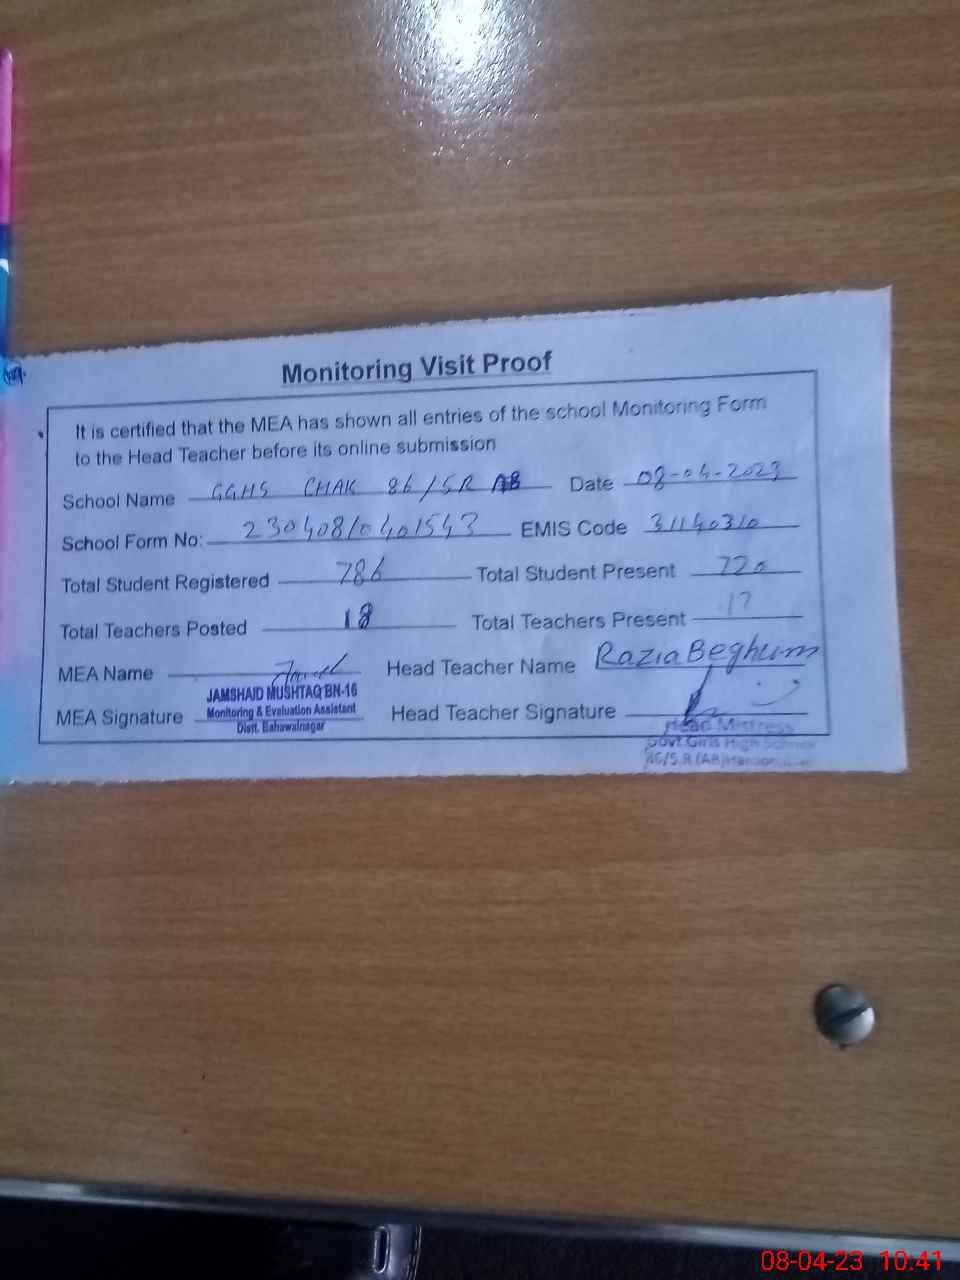 Monitoring Visit Proof
It is certified that the MEA has shown all entries of the school Monitoring Form
to the Head Teacher before its online submission
School Name GGHS CHAK 86/5R AB Date 08-04-2023
School Form No: 230408/0401543 EMIS Code 31140310
Total Student Registered 786 Total Student Present 720
Total Teachers Posted 18 Total Teachers Present 17
MEA Name Head Teacher Name Razia Beghum
JAMSHAID MUSHTAQ BN-16
Monitoring & Evaluation Assistant
Distt. Bahawalnagar
MEA Signature Head Teacher Signature
Head Mistress
Govt Girls High School
/5.R (AB)
08-04-23 10:41